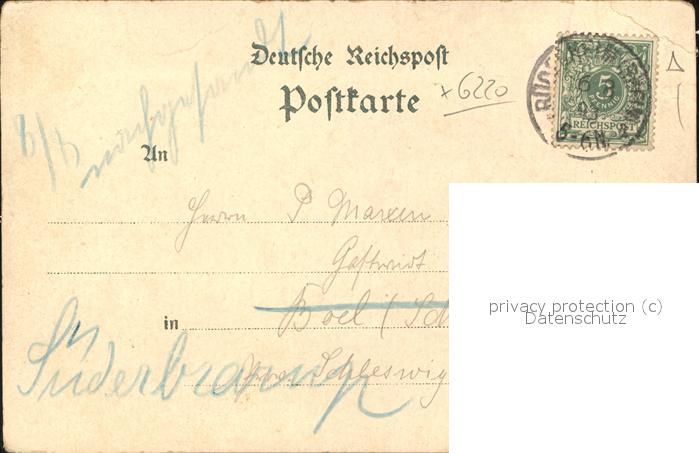 Deutsche Reichspost
Postkarte
x 6220
5
REICHSPOST
nachgesandt
An
Herrn P Marxen
Gastwirt
in Boel / Sch
Schleswig
Süderbrarup
privacy protection (c)
Datenschutz